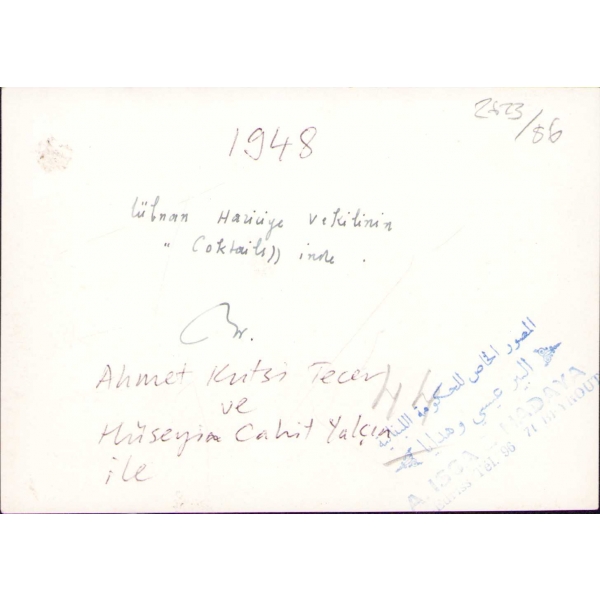 2823/86
1948
Lübnan Hariciye Vekilinin
" Coktails)) inde .
Ahmet Kutsi Tecer
ve
Hüseyin Cahit Yalçın
ile
44
المصور الخاص للحكومة اللبنانية
البير عيسى وهدايا
A. ISSA HADAYA
TEL. 96 71 BEYROUT